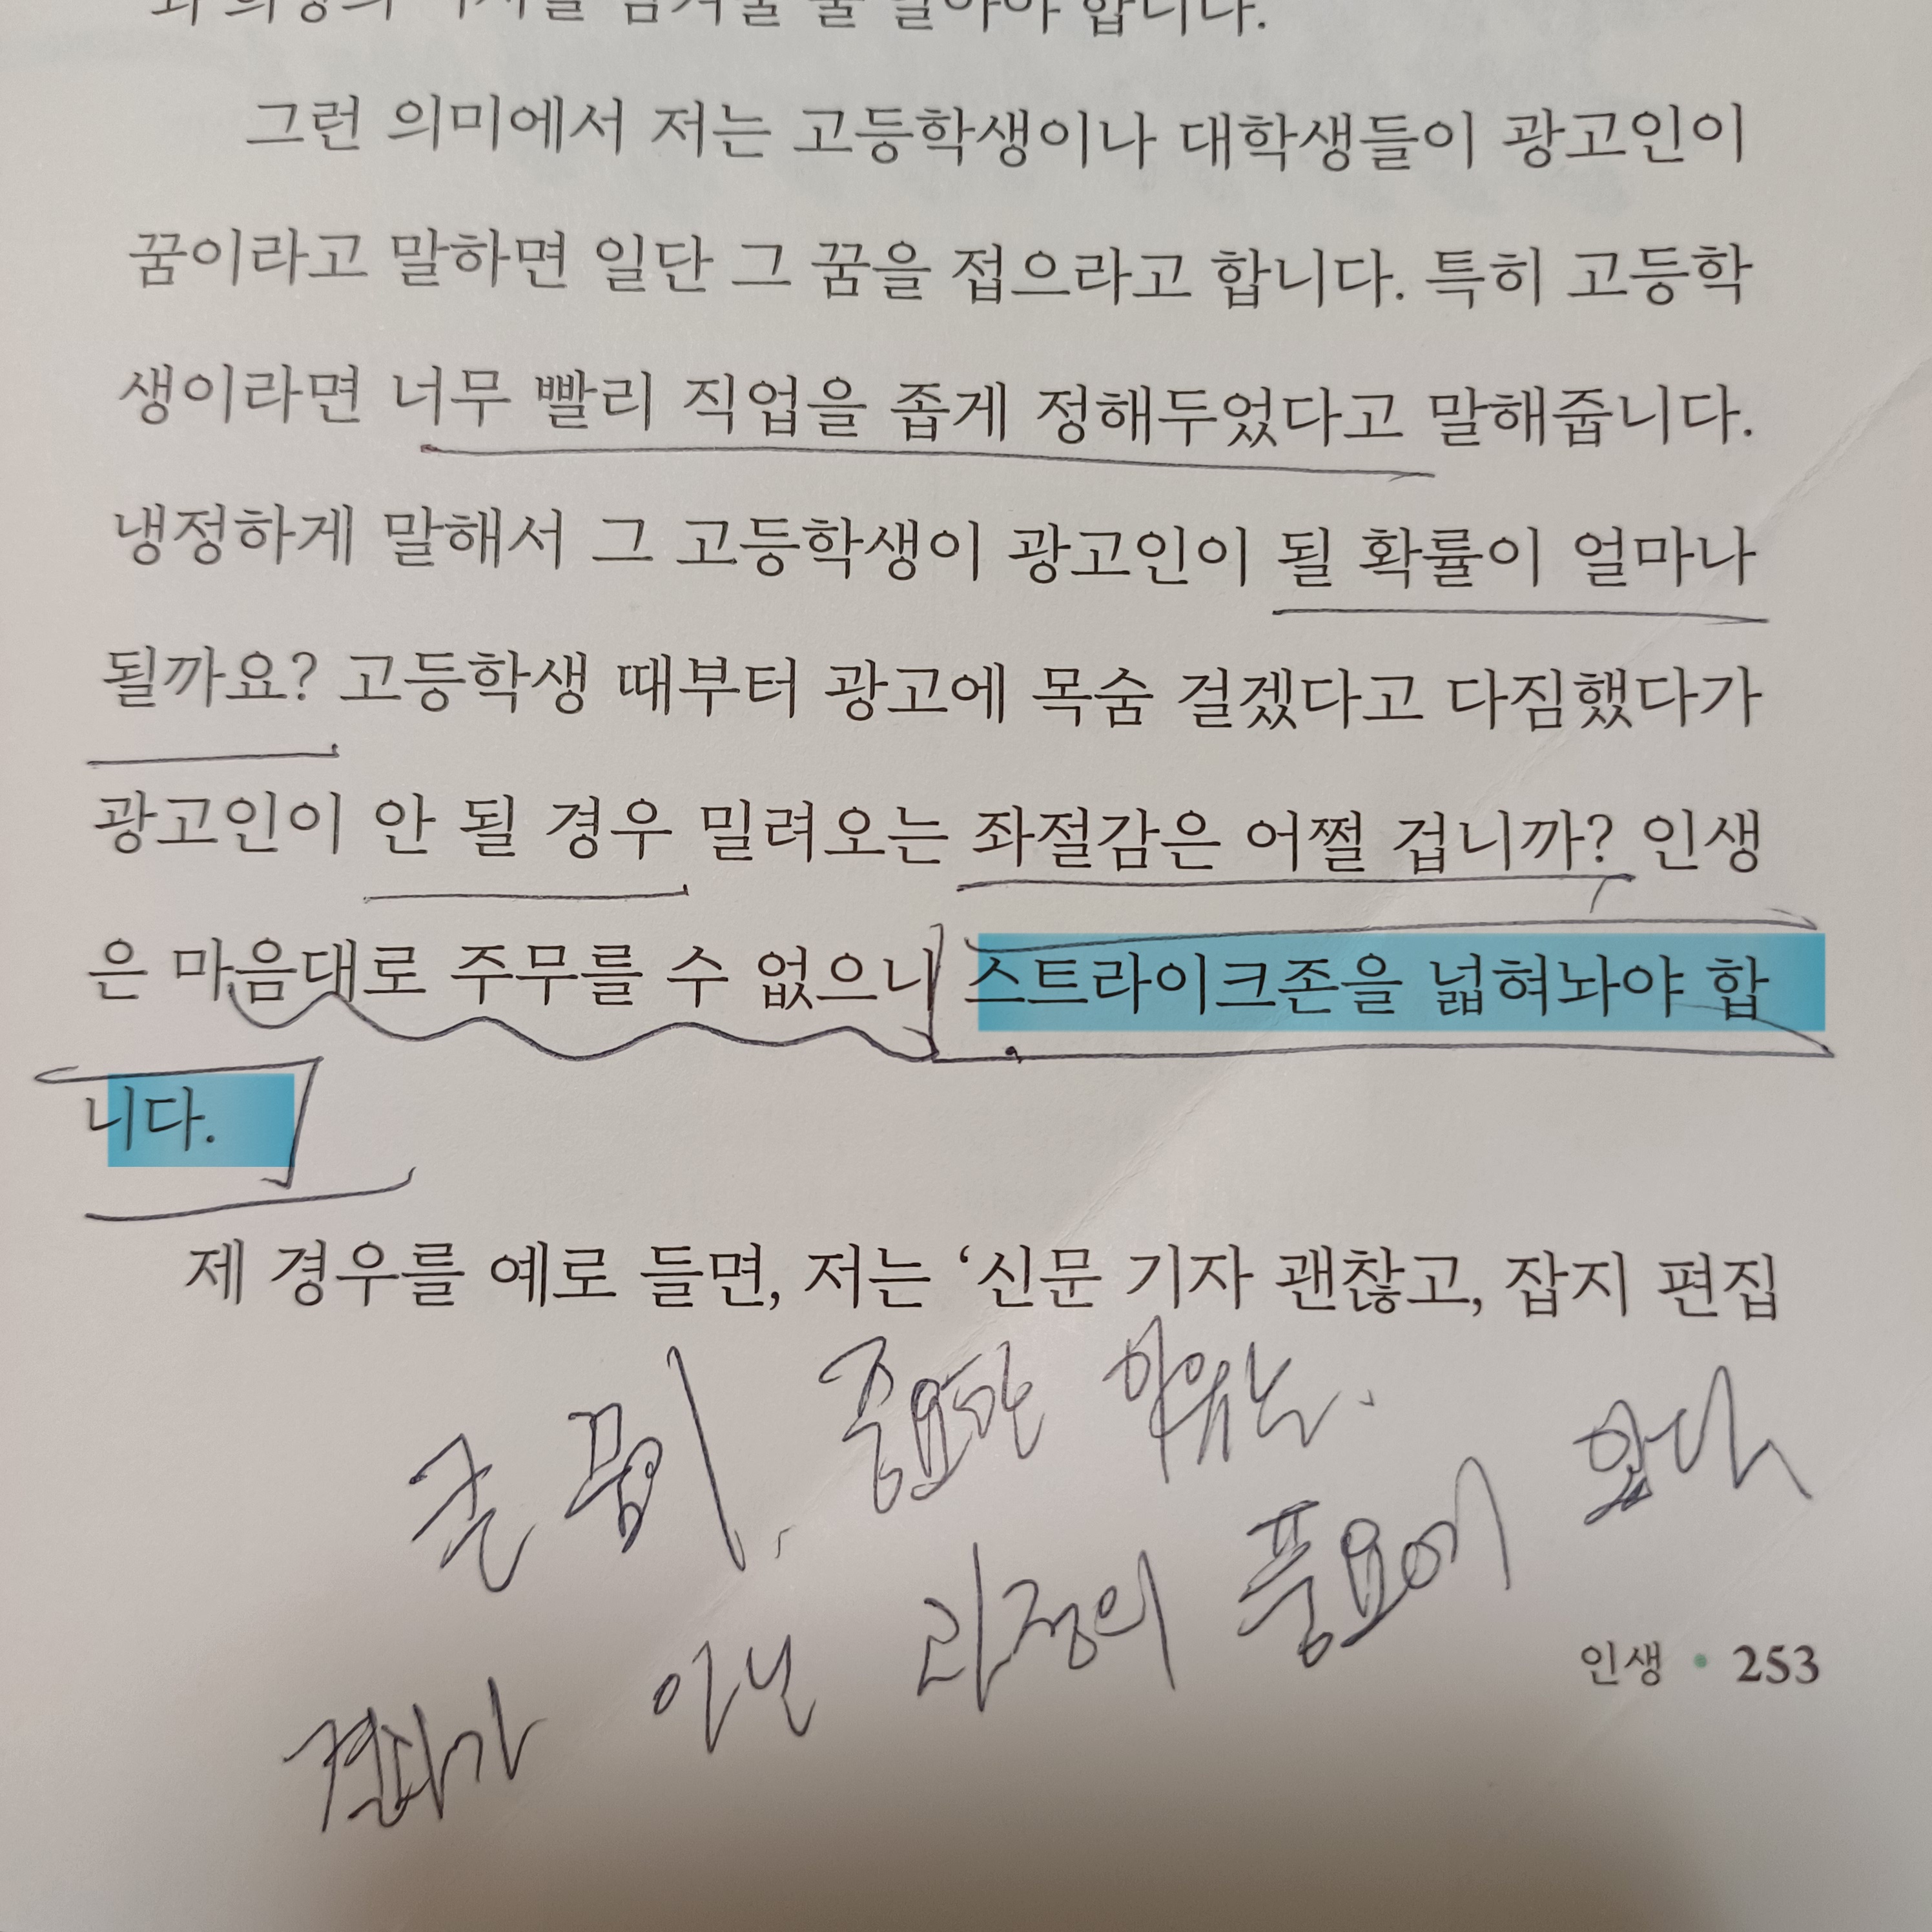 줄 알아야 합니다.
그런 의미에서 저는 고등학생이나 대학생들이 광고인이
꿈이라고 말하면 일단 그 꿈을 접으라고 합니다. 특히 고등학
생이라면 너무 빨리 직업을 좁게 정해두었다고 말해줍니다.
냉정하게 말해서 그 고등학생이 광고인이 될 확률이 얼마나
될까요? 고등학생 때부터 광고에 목숨 걸겠다고 다짐했다가
광고인이 안 될 경우 밀려오는 좌절감은 어쩔 겁니까? 인생
은 마음대로 주무를 수 없으니 스트라이크존을 넓혀놔야 합
니다.
제 경우를 예로 들면, 저는 ‘신문 기자 괜찮고, 잡지 편집
큰 꿈이, 중요한 이유는.
결과가 아닌 과정의 풍요에 있다
인생 • 253